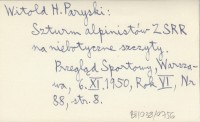 Witold H. Paryski:
Szturm alpinistów ZSRR
na niebotyczne szczyty.
Przegląd Sportowy, Warsza-
wa, 6. XI. 1950, Rok VI, Nr
88, str. 8.